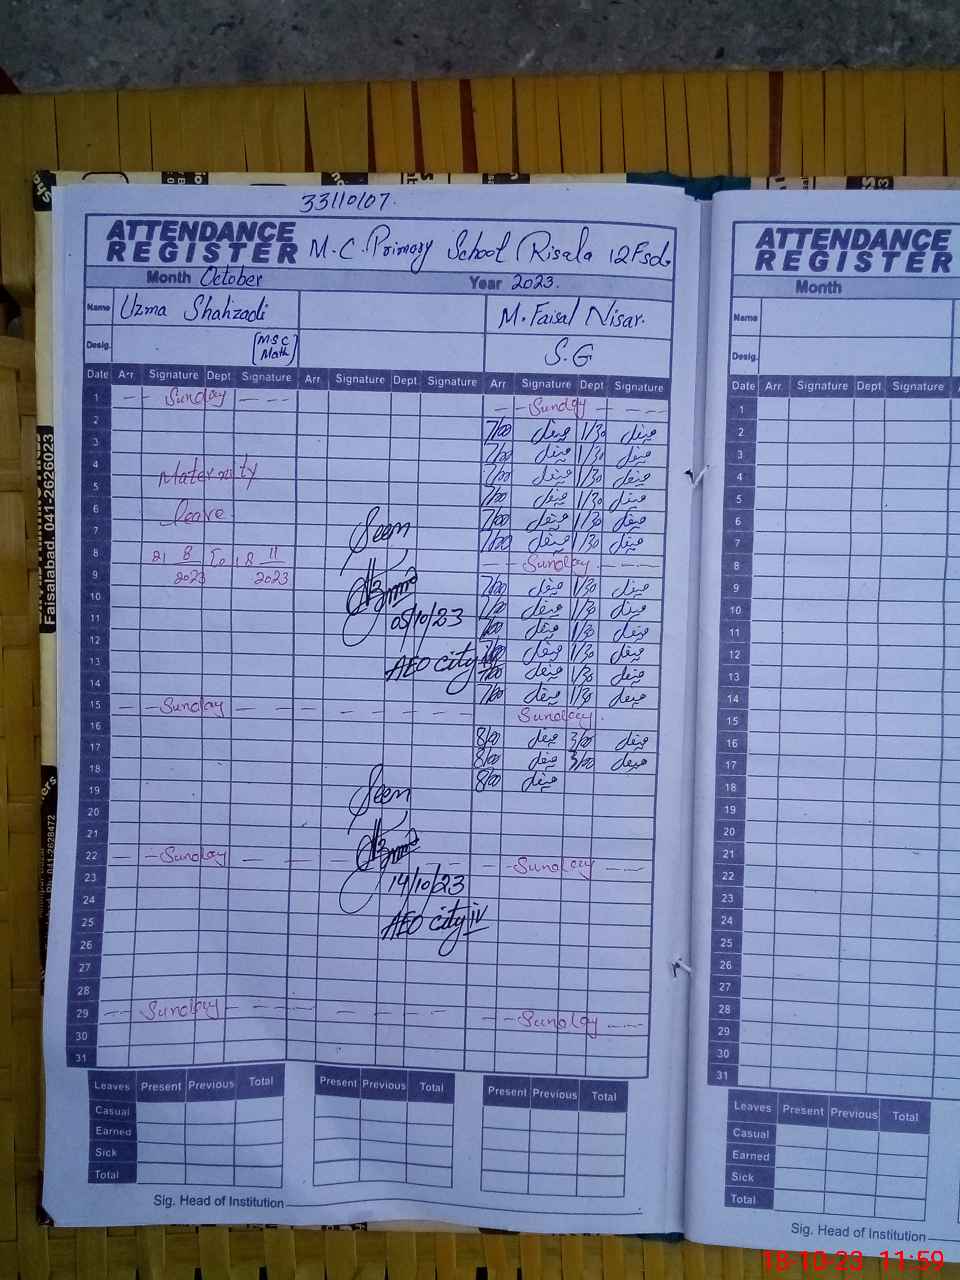 33110107.
ATTENDANCE
REGISTER M.C. Primary School Risala 12 Fsd.
Month October Year 2023.
Name Uzma Shahzadi M. Faisal Nisar.
Desig. [MSC Math] S.G
Date Arr. Signature Dept. Signature Arr. Signature Dept. Signature Arr Signature Dept Signature
1 Sunday Sunday
2 7/00 فیصل 1/30 فیصل
3 7/00 فیصل 1/30 فیصل
4 Maternity 7/00 فیصل 1/30 فیصل
5 7/00 فیصل 1/30 فیصل
6 leave 7/00 فیصل 1/30 فیصل
7 Seen 7/00 فیصل 1/30 فیصل
8 21 8 2023 To 18 11 2023 Sunday
9 7/00 فیصل 1/30 فیصل
10 7/00 فیصل 1/30 فیصل
11 05/10/23 7/00 فیصل 1/30 فیصل
12 7/00 فیصل 1/30 فیصل
13 AEO city 7/00 فیصل 1/30 فیصل
14 7/00 فیصل 1/30 فیصل
15 Sunday Sunday.
16 8/00 فیصل 3/00 فیصل
17 8/00 فیصل 3/00 فیصل
18 8/00 فیصل
19 Seen
20
21
22 Sunday Sunday
23 14/10/23
24
25 AEO city iv
26
27
28
29 Sunday Sunday
30
31
Leaves Present Previous Total Present Previous Total Present Previous Total
Casual
Earned
Sick
Total
Sig. Head of Institution
ATTENDANCE
REGISTER
Month
Name
Desig.
Date Arr. Signature Dept. Signature
1
2
3
4
5
6
7
8
9
10
11
12
13
14
15
16
17
18
19
20
21
22
23
24
25
26
27
28
29
30
31
Leaves Present Previous Total
Casual
Earned
Sick
Total
Sig. Head of Institution
Faisalabad. 041-2626023
18-10-23 11:59